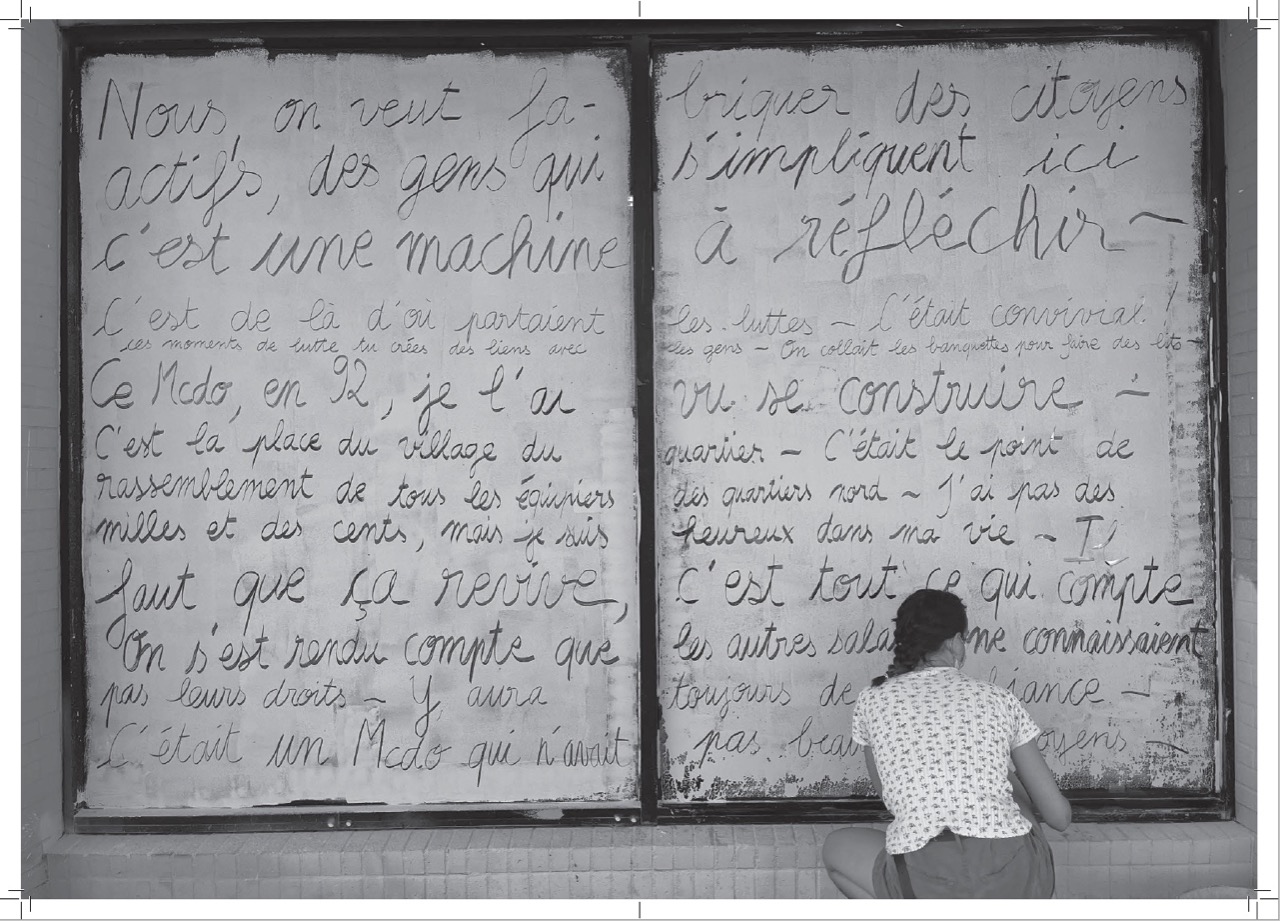 Nous, on veut fa- briquer des citoyens
actifs, des gens qui s'impliquent ici
c'est une machine à réfléchir ~
C'est de là d'où partaient les luttes ~ C'était convivial !
ces moments de lutte tu crées des liens avec les gens ~ On collait les banquettes pour faire des
Ce Mcdo, en 92, je l'ai vu se construire ~
C'est la place du village du quartier ~ C'était le point de
rassemblement de tous les équipiers des quartiers nord ~ J'ai pas des
milles et des cents, mais je suis heureux dans ma vie ~ Il
faut que ça revive, c'est tout ce qui compte
On s'est rendu compte que les autres ne connaissaient
pas leurs droits ~ Y aura toujours de ~
C'était un Mcdo qui n'avait pas ~